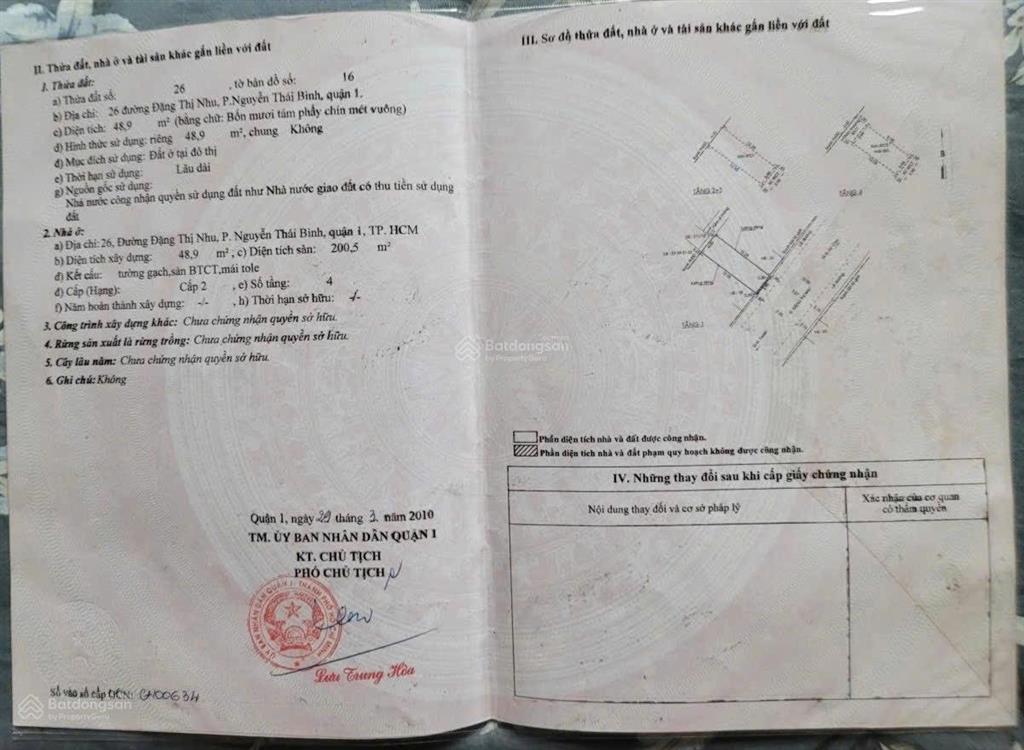 II. Thửa đất, nhà ở và tài sản khác gắn liền với đất
1. Thửa đất:
a) Thửa đất số: 26 , tờ bản đồ số: 16
b) Địa chỉ: 26 đường Đặng Thị Nhu, P.Nguyễn Thái Bình, quận 1.
c) Diện tích: 48,9 m² (bằng chữ: Bốn mươi tám phẩy chín mét vuông)
d) Hình thức sử dụng: riêng 48,9 m², chung Không
đ) Mục đích sử dụng: Đất ở tại đô thị
e) Thời hạn sử dụng: Lâu dài
g) Nguồn gốc sử dụng:
Nhà nước công nhận quyền sử dụng đất như Nhà nước giao đất có thu tiền sử dụng
đất
2. Nhà ở:
a) Địa chỉ:26, Đường Đặng Thị Nhu, P. Nguyễn Thái Bình, quận 1, TP. HCM
b) Diện tích xây dựng: 48,9 m² , c) Diện tích sàn: 200,5 m²
d) Kết cấu: tường gạch,sàn BTCT,mái tole
đ) Cấp (Hạng): Cấp 2 , e) Số tầng: 4
f) Năm hoàn thành xây dựng: -/- , h) Thời hạn sở hữu: -/-
3. Công trình xây dựng khác: Chưa chứng nhận quyền sở hữu.
4. Rừng sản xuất là rừng trồng: Chưa chứng nhận quyền sở hữu.
5. Cây lâu năm: Chưa chứng nhận quyền sở hữu.
6. Ghi chú: Không
Quận 1, ngày 29 tháng 3 năm 2010
TM. ỦY BAN NHÂN DÂN QUẬN 1
KT. CHỦ TỊCH
PHÓ CHỦ TỊCH
Lưu Trung Hòa
Số vào sổ cấp GCN: CH00634
III. Sơ đồ thửa đất, nhà ở và tài sản khác gắn liền với đất
TẦNG 2+3
TẦNG 4
TẦNG 1
Phần diện tích nhà và đất được công nhận.
Phần diện tích nhà và đất phạm quy hoạch không được công nhận.
IV. Những thay đổi sau khi cấp giấy chứng nhận
Nội dung thay đổi và cơ sở pháp lý
Xác nhận của cơ quan
có thẩm quyền
Batdongsan
by PropertyGuru
Batdongsan
by PropertyGuru
Batdongsan
by PropertyGuru